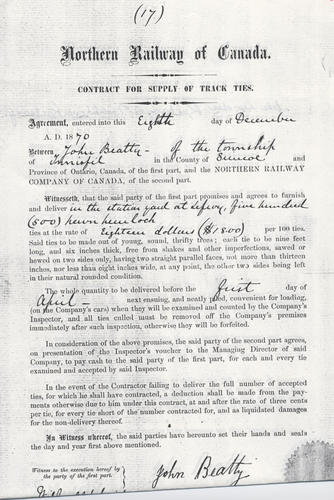 (17)
Northern Railway of Canada.
CONTRACT FOR SUPPLY OF TRACK TIES.
Agreement, entered into this Eighth day of December
A. D. 1870
Between John Beatty - of the township
of Innisfil in the County of Simcoe and
Province of Ontario, Canada, of the first part, and the NORTHERN RAILWAY
COMPANY OF CANADA, of the second part.
Witnesseth, that the said party of the first part promises and agrees to furnish
and deliver in the station yard at Lefroy, five hundred
(500) hewn hemlock
ties at the rate of Eighteen dollars ($1800) per 100 ties.
Said ties to be made out of young, sound, thrifty trees; each tie to be nine feet
long, and six inches thick, free from shakes and other imperfections, sawed or
hewed on two sides only, having two straight parallel faces, not more than thirteen
inches, nor less than eight inches wide, at any point, the other two sides being left
in their natural rounded condition.
The whole quantity to be delivered before the first day of
April - next ensuing, and neatly piled, convenient for loading,
(on the Company's cars) when they will be examined and counted by the Company's
Inspector, and all ties culled must be removed off the Company's premises
immediately after such inspection, otherwise they will be forfeited.
In consideration of the above promises, the said party of the second part agrees,
on presentation of the Inspector's voucher to the Managing Director of said
Company, to pay cash to the said party of the first part, for each and every tie
examined and accepted by said Inspector.
In the event of the Contractor failing to deliver the full number of accepted
ties, for which he shall have contracted, a deduction shall be made from the pay-
ments otherwise due to him under this contract, at and after the rate of three cents
per tie, for every tie short of the number contracted for, and as liquidated damages
for the non-delivery thereof.
In Witness whereof, the said parties have hereunto set their hands and seals
the day and year first above mentioned.
Witness to the execution hereof by
the party of the first part.
John Beatty